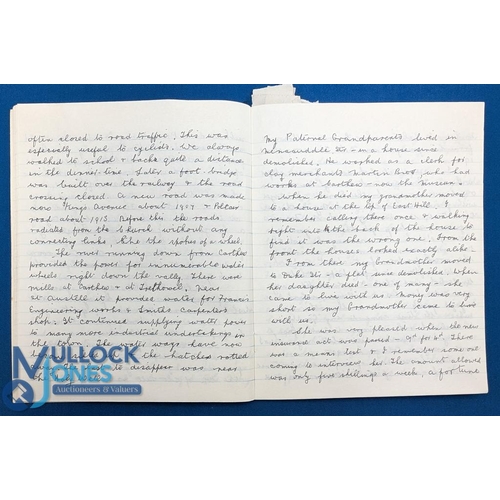 often closed to road traffic. This was
especially useful to cyclists. We always
walked to school & back quite a distance
in the dinner-time. Later a foot-bridge
was built over the railway & the road
crossing closed. A new road was made
into Kings Avenue about 1914 &
road about 1913. Before this the roads
radiated from the Church without any
connecting links, like the spokes of a wheel.
The river running down from Carthew
provided the power for innumerable water
wheels right down the valley. There were
mills at Carthew & at Trethowel. Near
St Austell it provided water for Francis
Engineering works & Smiths Carpenters
shop. It continued supplying water power
to many more industrial undertakings in
the town. The water ways have now
the hatches rotted
to disappear was near
My Paternal Grandparents lived in
Menacuddle St - in a house since
demolished. He worked as a clerk for
clay merchants Martin Bros who had
works at Carthew - now the Museum.
When he died my grandmother moved
to a house at the top of East Hill. I
remember calling there once & walking
right into the back of the house to
find it was the wrong one. From the
front the houses looked exactly alike.
From there my Grandmother moved
to Duke St - a flat since demolished. When
her daughter died - one of many - she
came to live with us. Money was very
short so my Grandmother came to live
with us.
She was very pleased when the new
insurance act was passed - 9d for 4d. There
was a means test & I remember some one
coming to interview her. The amount allowed
was only five shillings a week, a fortune
MULLOCK
JONES
Auctioneers & Valuers